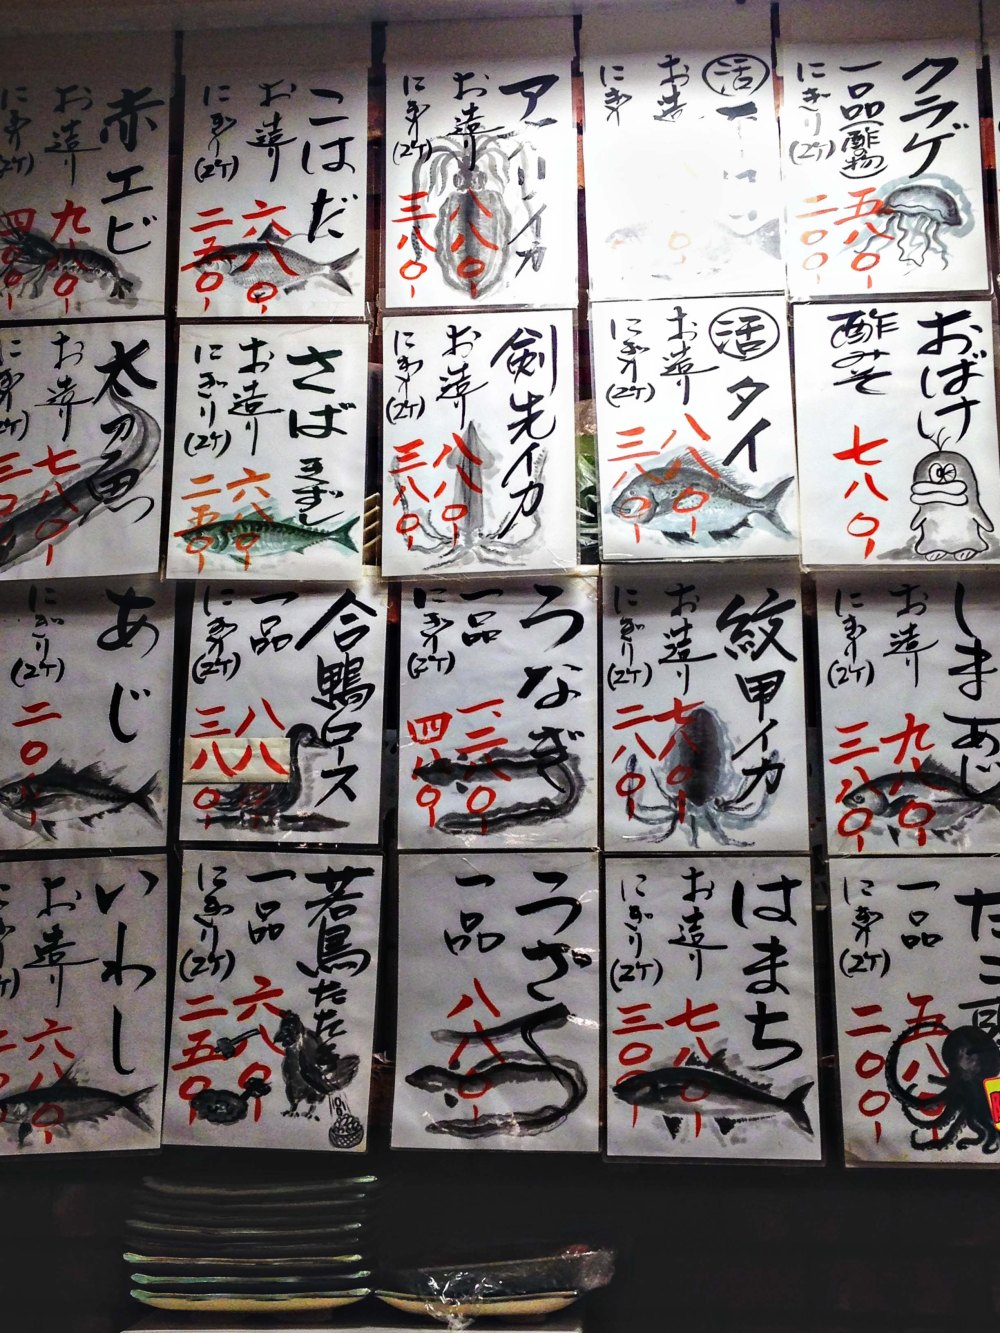 クラゲ
一品(酢物) 五八〇-
にぎり(2ケ) 二〇〇-
活
お造
にぎ
アオリイカ
お造り 八八〇-
にぎり(2ケ) 三八〇-
こはだ
お造り 六八〇-
にぎり(2ケ) 二五〇-
赤エビ
お造り 九八〇-
にぎり(2ケ) 四〇〇-
おばけ
酢みそ 七八〇-
活 タイ
お造り 八八〇-
にぎり(2ケ) 三八〇-
剣先イカ
お造り 八八〇-
にぎり(2ケ) 三八〇-
さば きずし
お造り 六八〇-
にぎり(2ケ) 二五〇-
太刀魚
お造り 七八〇-
にぎり(2ケ)
しまあじ
お造り 九八〇-
にぎり(2ケ) 三八〇-
紋甲イカ
お造り 七八〇-
にぎり(2ケ) 二八〇-
うなぎ
一品
にぎり(2ケ) 四八〇-
合鴨ロース
一品 八八〇-
にぎり(2ケ) 三八〇-
あじ
にぎり(2ケ)
たこ
一品 五八〇-
にぎり(2ケ) 二〇〇-
はまち
お造り 七八〇-
にぎり(2ケ) 三〇〇-
うざく
一品 八八〇-
若鳥たたき
一品 六八〇-
にぎり(2ケ) 二五〇-
いわし
お造り 六八〇-